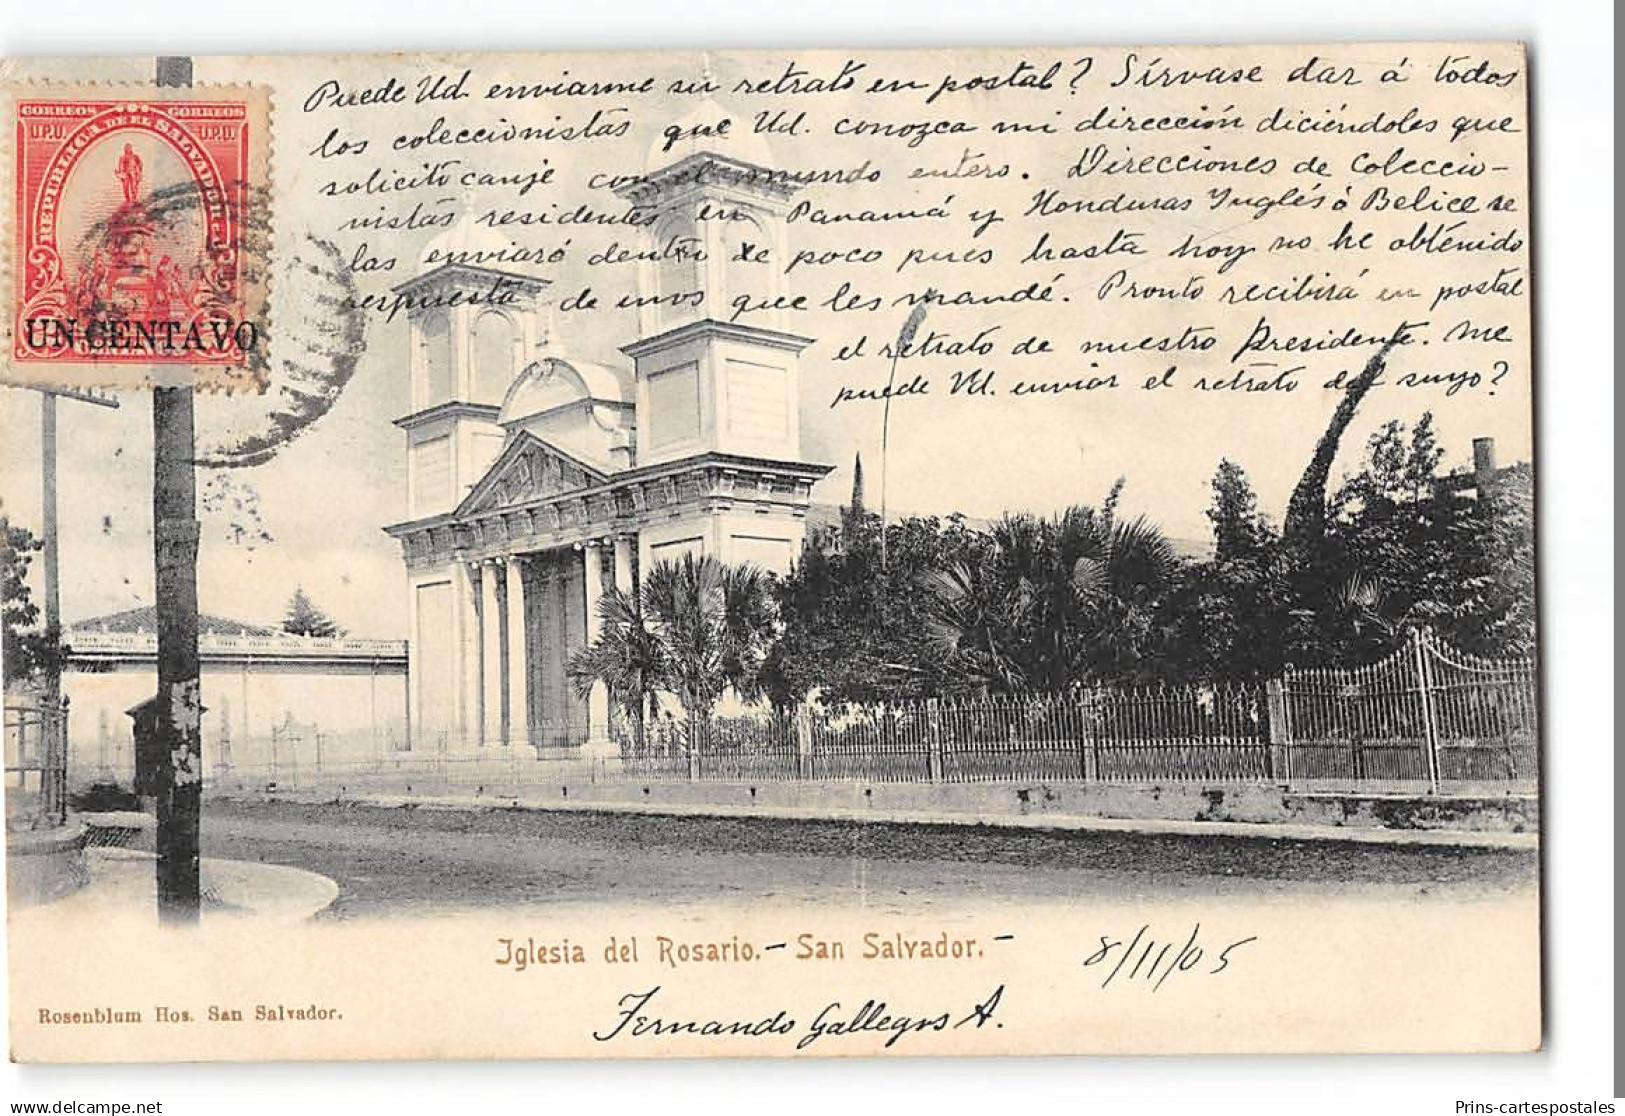 Puede Ud. enviarme su retrato en postal? Sírvase dar á todos
los coleccionistas que Ud. conozca mi dirección diciéndoles que
solicito canje con el mundo entero. Direcciones de Coleccio-
nistas residentes en Panamá y Honduras Inglés ó Belice se
las enviaró dentro de poco pues hasta hoy no he obtenido
respuesta de unos que les mandé. Pronto recibirá en postal
el retrato de nuestro Presidente. Me
puede Vd. enviar el retrato del suyo?
CORREOS CORREOS
U.P.U. U.P.U.
REPUBLICA DE EL SALVADOR
UN CENTAVO
Iglesia del Rosario.- San Salvador.-
8/11/05
Rosenblum Hos. San Salvador.
Fernando Gallegos A.
delcampe.net
Prins-cartespostales